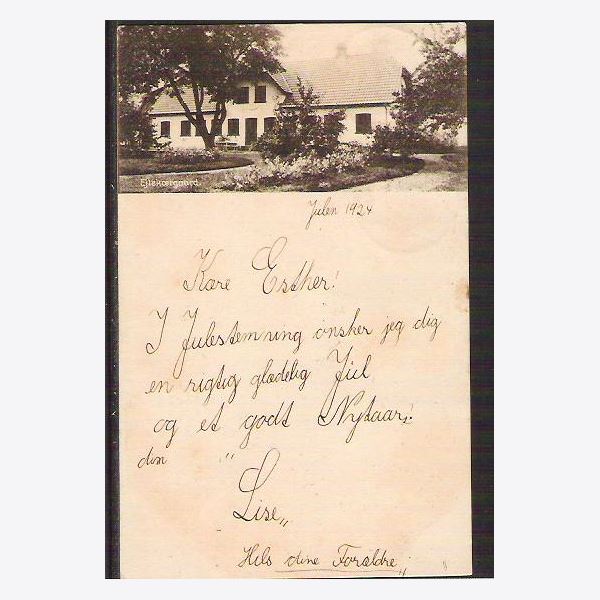 Ellekærgaard.
Julen 1924
Kære Esther!
I Julestemning ønsker jeg dig
en rigtig glædelig Jul
og et godt Nytaar!
din "
Lise„
Hils dine Forældre„